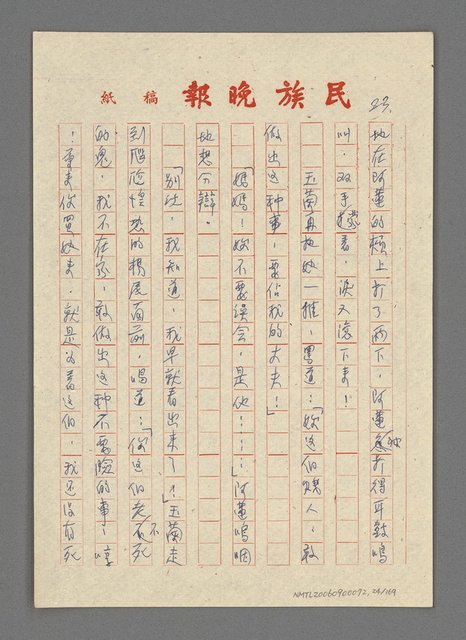 民族晚報 稿紙
23.
她在阿蓮的頰上打了兩下,阿蓮被她打得耳鼓鳴
叫,双手摸着,淚又滾下來!
玉蘭再把她一推,罵道:「妳這個賤人,敢
做出這种事,要佔我的丈夫!」
「媽媽!妳不要誤会,是他⋯⋯」阿蓮嗚咽
地想分辯。
「別說,我知道,我早就看出來!」玉蘭走
到尷尬惶恐的楊展面前,喝道:「你這個老不死
的鬼,我不在家,敢做出這种不要臉的事!哼
!當来你買她来,就是為着這個,我还沒有死
NMTL20060900072, 24/169